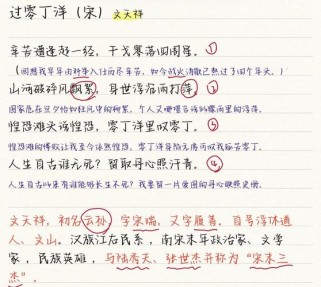 过零丁洋（宋）文天祥
辛苦遭逢起一经，干戈寥落四周星。①
（回想我早年由科举入仕历尽辛苦，如今战火消歇已熬过了四个年头。）
山河破碎风飘絮，身世浮沉雨打萍。②
国家危在旦夕恰如狂风中的柳絮，个人又哪堪言说似骤雨里的浮萍。
惶恐滩头说惶恐，零丁洋里叹零丁。③
惶恐滩的惨败让我至今依然惶恐，零丁洋身陷元虏可叹我孤苦零丁。
人生自古谁无死？留取丹心照汗青。④
人生自古以来有谁能够长生不死？我要留一片爱国的丹心映照史册。
文天祥，初名云孙，字宋瑞，又字履善，自号浮休道
人、文山。汉族江右民系，南宋末年政治家、文学
家，民族英雄，与陆秀夫、张世杰并称为“宋末三
杰”。